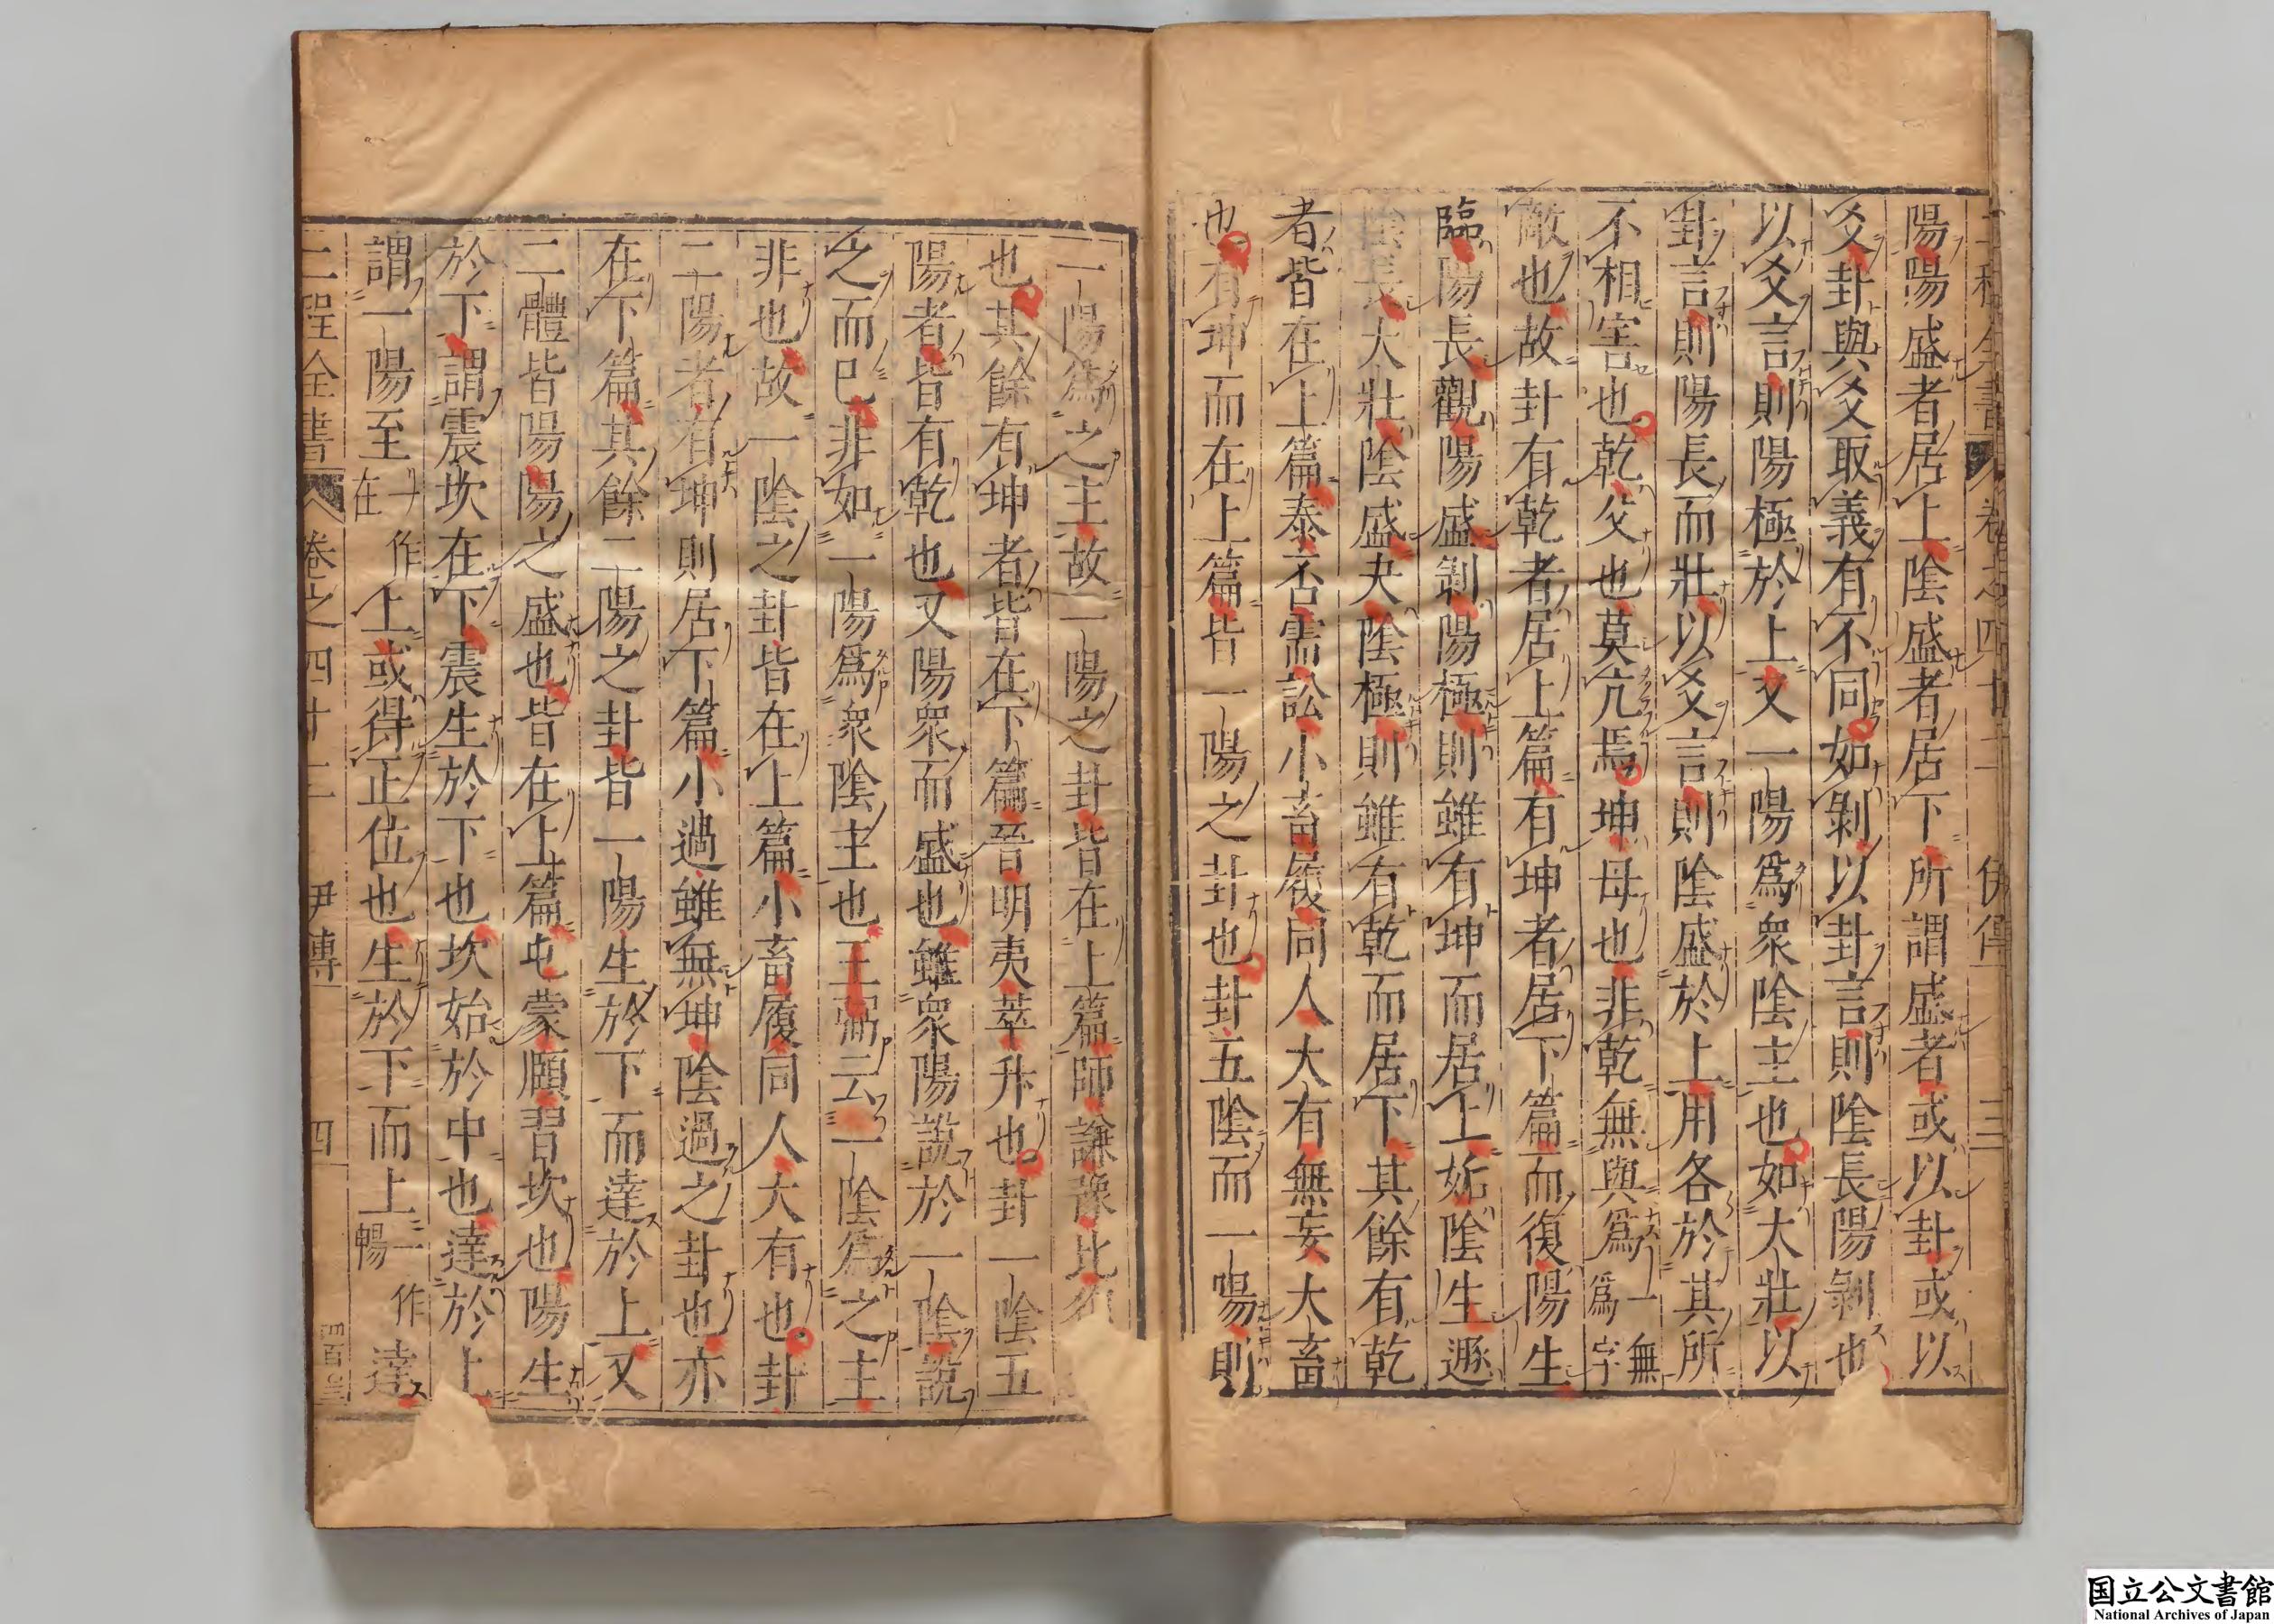 陽陽盛者居上陰盛者居下所謂盛者或以卦或以
爻卦與爻取義有不同如剝以卦言則陰長陽剝也
以爻言則陽極於上又一陽爲衆陰主也如大壯以
卦言則陽長而壯以爻言則陰盛於上用各於其所
不相害也乾父也莫亢焉坤母也非乾無與爲一無爲字
敵也故卦有乾者居上篇有坤者居下篇而復陽生
臨陽長觀陽盛剝陽極則雖有坤而居上姤陰生遯
陰長大壯陰盛夬陰極則雖有乾而居下其餘有乾
者皆在上篇泰否需訟小畜履同人大有無妄大畜
也有坤而在上篇皆一陽之卦也卦五陰而一陽則
一陽爲之主故一陽之卦皆在上篇師謙豫比
也其餘有坤者皆在下篇晉明夷萃升也卦一陰五
陽者皆有乾也又陽衆而盛也雖衆陽說於一陰說
之而已非如一陽爲衆陰主也王弼云一陰爲之主
非也故一陰之卦皆在上篇小畜履同人大有也卦
二陽者有坤則居下篇小過雖無坤陰過之卦也亦
在下篇其餘二陽之卦皆一陽生於下而達於上又
二體皆陽陽之盛也皆在上篇屯蒙頤習坎也陽生
於下謂震坎在下震生於下也坎始於中也達於上
謂一陽至一作在上或得正位也生於下而上一作暢達
二程全書 卷之四十二 伊傳 四